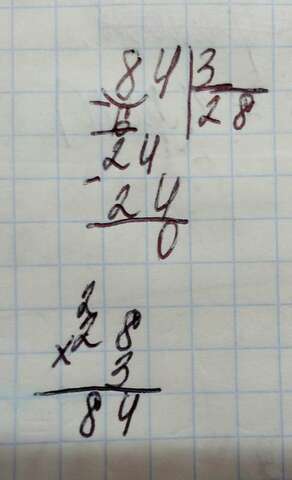 84|3
-6 |28
24
-24
0
2
×28
3
84